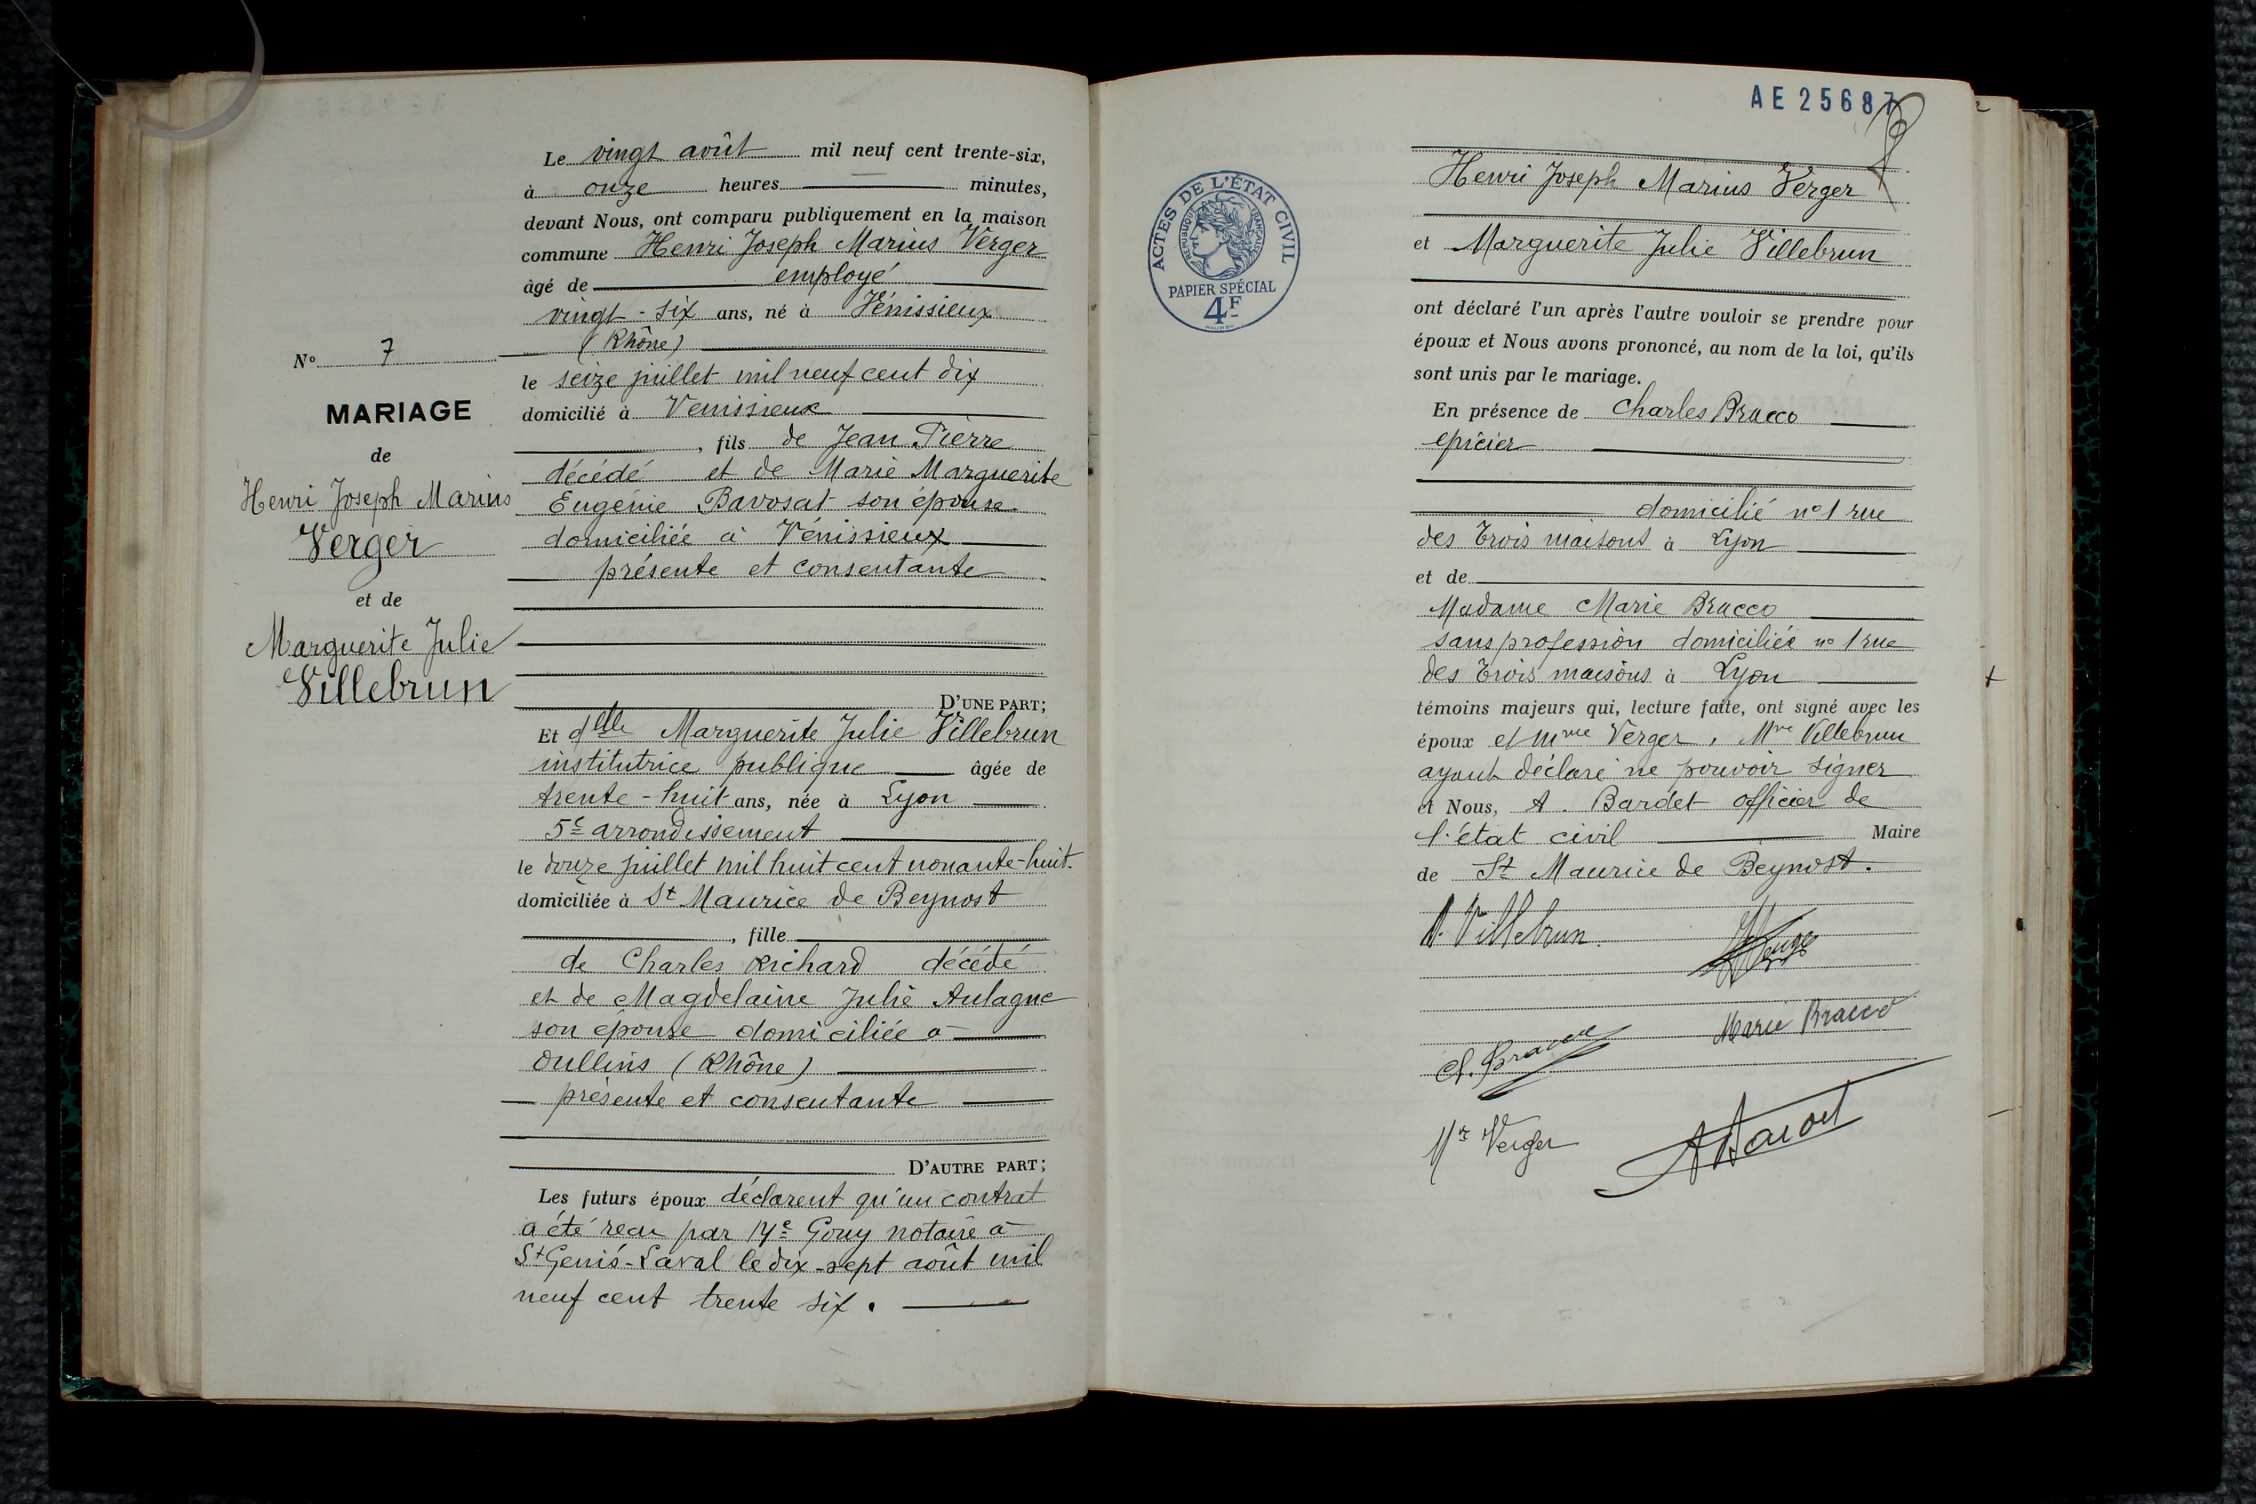 Le vingt août mil neuf cent trente-six,
à onze heures minutes,
devant Nous, ont comparu publiquement en la maison
commune Henri Joseph Marius Verger
âgé de employé
vingt-six ans, né à Vénissieux
(Rhône)
le seize juillet mil neuf cent dix
domicilié à Venissieux
, fils de Jean Pierre
décédé et de Marie Marguerite
Eugénie Bavosat son épouse
domiciliée à Vénissieux
présente et consentante
D'UNE PART;
N° 7
MARIAGE
de
Henri Joseph Marius
Verger
et de
Marguerite Julie
Villebrun
Et dlle Marguerite Julie Villebrun
institutrice publique âgée de
trente-huit ans, née à Lyon
5e arrondissement
le douze juillet mil huit cent nonante-huit.
domiciliée à St Maurice de Beynost
, fille
de Charles Richard décédé
et de Magdelaine Julie Aulagne
son épouse domiciliée à
Oullins (Rhône)
présente et consentante
D'AUTRE PART;
Les futurs époux déclarent qu'un contrat
a été reçu par Me Gouy notaire à
St Genis-Laval le dix-sept août mil
neuf cent trente six.
AE25687
ACTES DE L'ÉTAT CIVIL
RÉPUBLIQUE FRANÇAISE
PAPIER SPÉCIAL
4F
Henri Joseph Marius Verger
et Marguerite Julie Villebrun
ont déclaré l'un après l'autre vouloir se prendre pour
époux et Nous avons prononcé, au nom de la loi, qu'ils
sont unis par le mariage.
En présence de Charles Bracco
epicier
domicilié n° 1 rue
des Trois maisons à Lyon
et de
Madame Marie Bracco
sans profession domiciliée n° 1 rue
des Trois maisons à Lyon
témoins majeurs qui, lecture faite, ont signé avec les
époux et Mme Verger, Mme Villebrun
ayant déclaré ne pouvoir signer
et Nous, A. Bardet officier de
l'état civil Maire
de St Maurice de Beynost.
M. Villebrun
Verger
Ch. Bracco
Marie Bracco
Mme Verger
ABardet